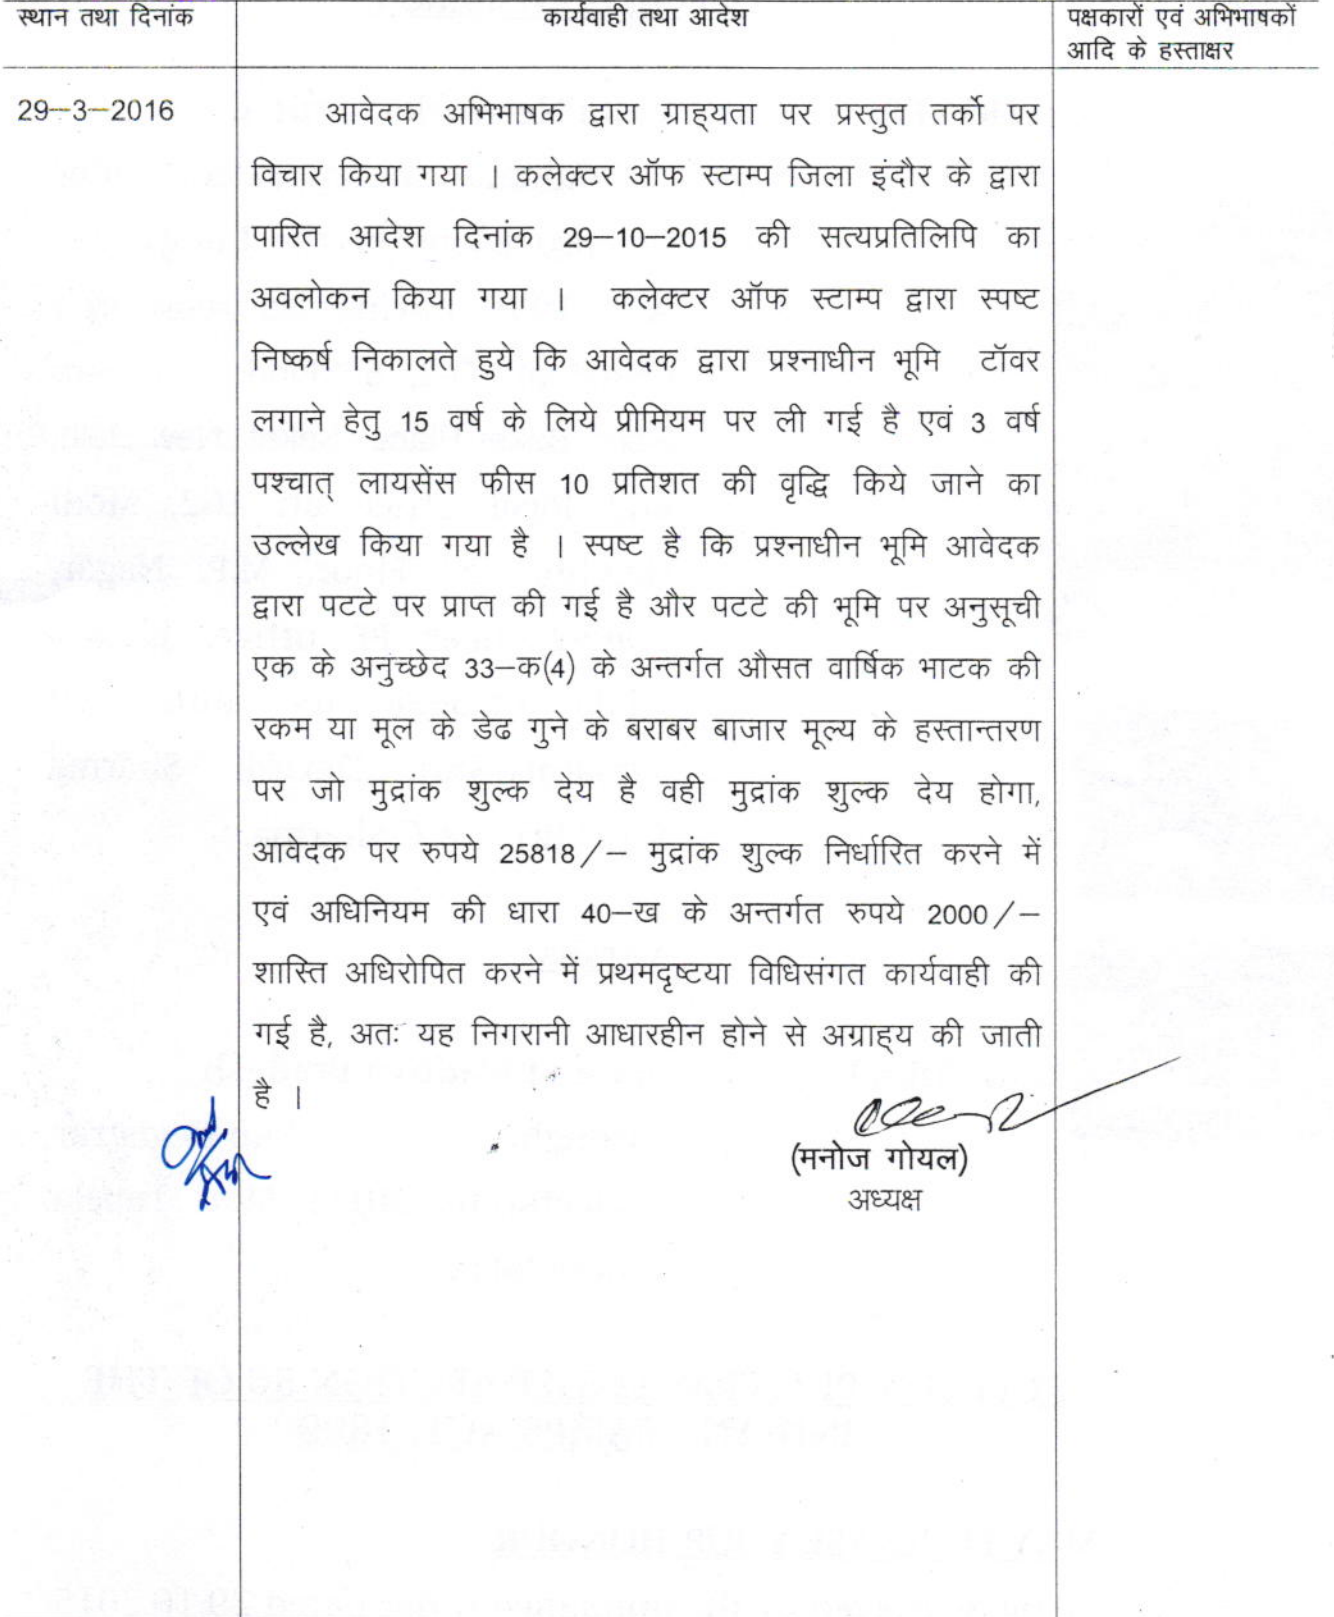 स्थान तथा दिनांक
कार्यवाही तथा आदेश
पक्षकारों एवं अभिभाषकों
आदि के हस्ताक्षर
29–3–2016
आवेदक अभिभाषक द्वारा ग्राह्यता पर प्रस्तुत तर्को पर
विचार किया गया । कलेक्टर ऑफ स्टाम्प जिला इंदौर के द्वारा
पारित आदेश दिनांक 29–10–2015 की सत्यप्रतिलिपि का
अवलोकन किया गया । कलेक्टर ऑफ स्टाम्प द्वारा स्पष्ट
निष्कर्ष निकालते हुये कि आवेदक द्वारा प्रश्नाधीन भूमि टॉवर
लगाने हेतु 15 वर्ष के लिये प्रीमियम पर ली गई है एवं 3 वर्ष
पश्चात् लायसेंस फीस 10 प्रतिशत की वृद्धि किये जाने का
उल्लेख किया गया है । स्पष्ट है कि प्रश्नाधीन भूमि आवेदक
द्वारा पटटे पर प्राप्त की गई है और पटटे की भूमि पर अनुसूची
एक के अनुच्छेद 33–क(4) के अन्तर्गत औसत वार्षिक भाटक की
रकम या मूल के डेढ गुने के बराबर बाजार मूल्य के हस्तान्तरण
पर जो मुद्रांक शुल्क देय है वही मुद्रांक शुल्क देय होगा,
आवेदक पर रुपये 25818/– मुद्रांक शुल्क निर्धारित करने में
एवं अधिनियम की धारा 40–ख के अन्तर्गत रुपये 2000/–
शास्ति अधिरोपित करने में प्रथमदृष्टया विधिसंगत कार्यवाही की
गई है, अतः यह निगरानी आधारहीन होने से अग्राह्य की जाती
है ।
(मनोज गोयल)
अध्यक्ष